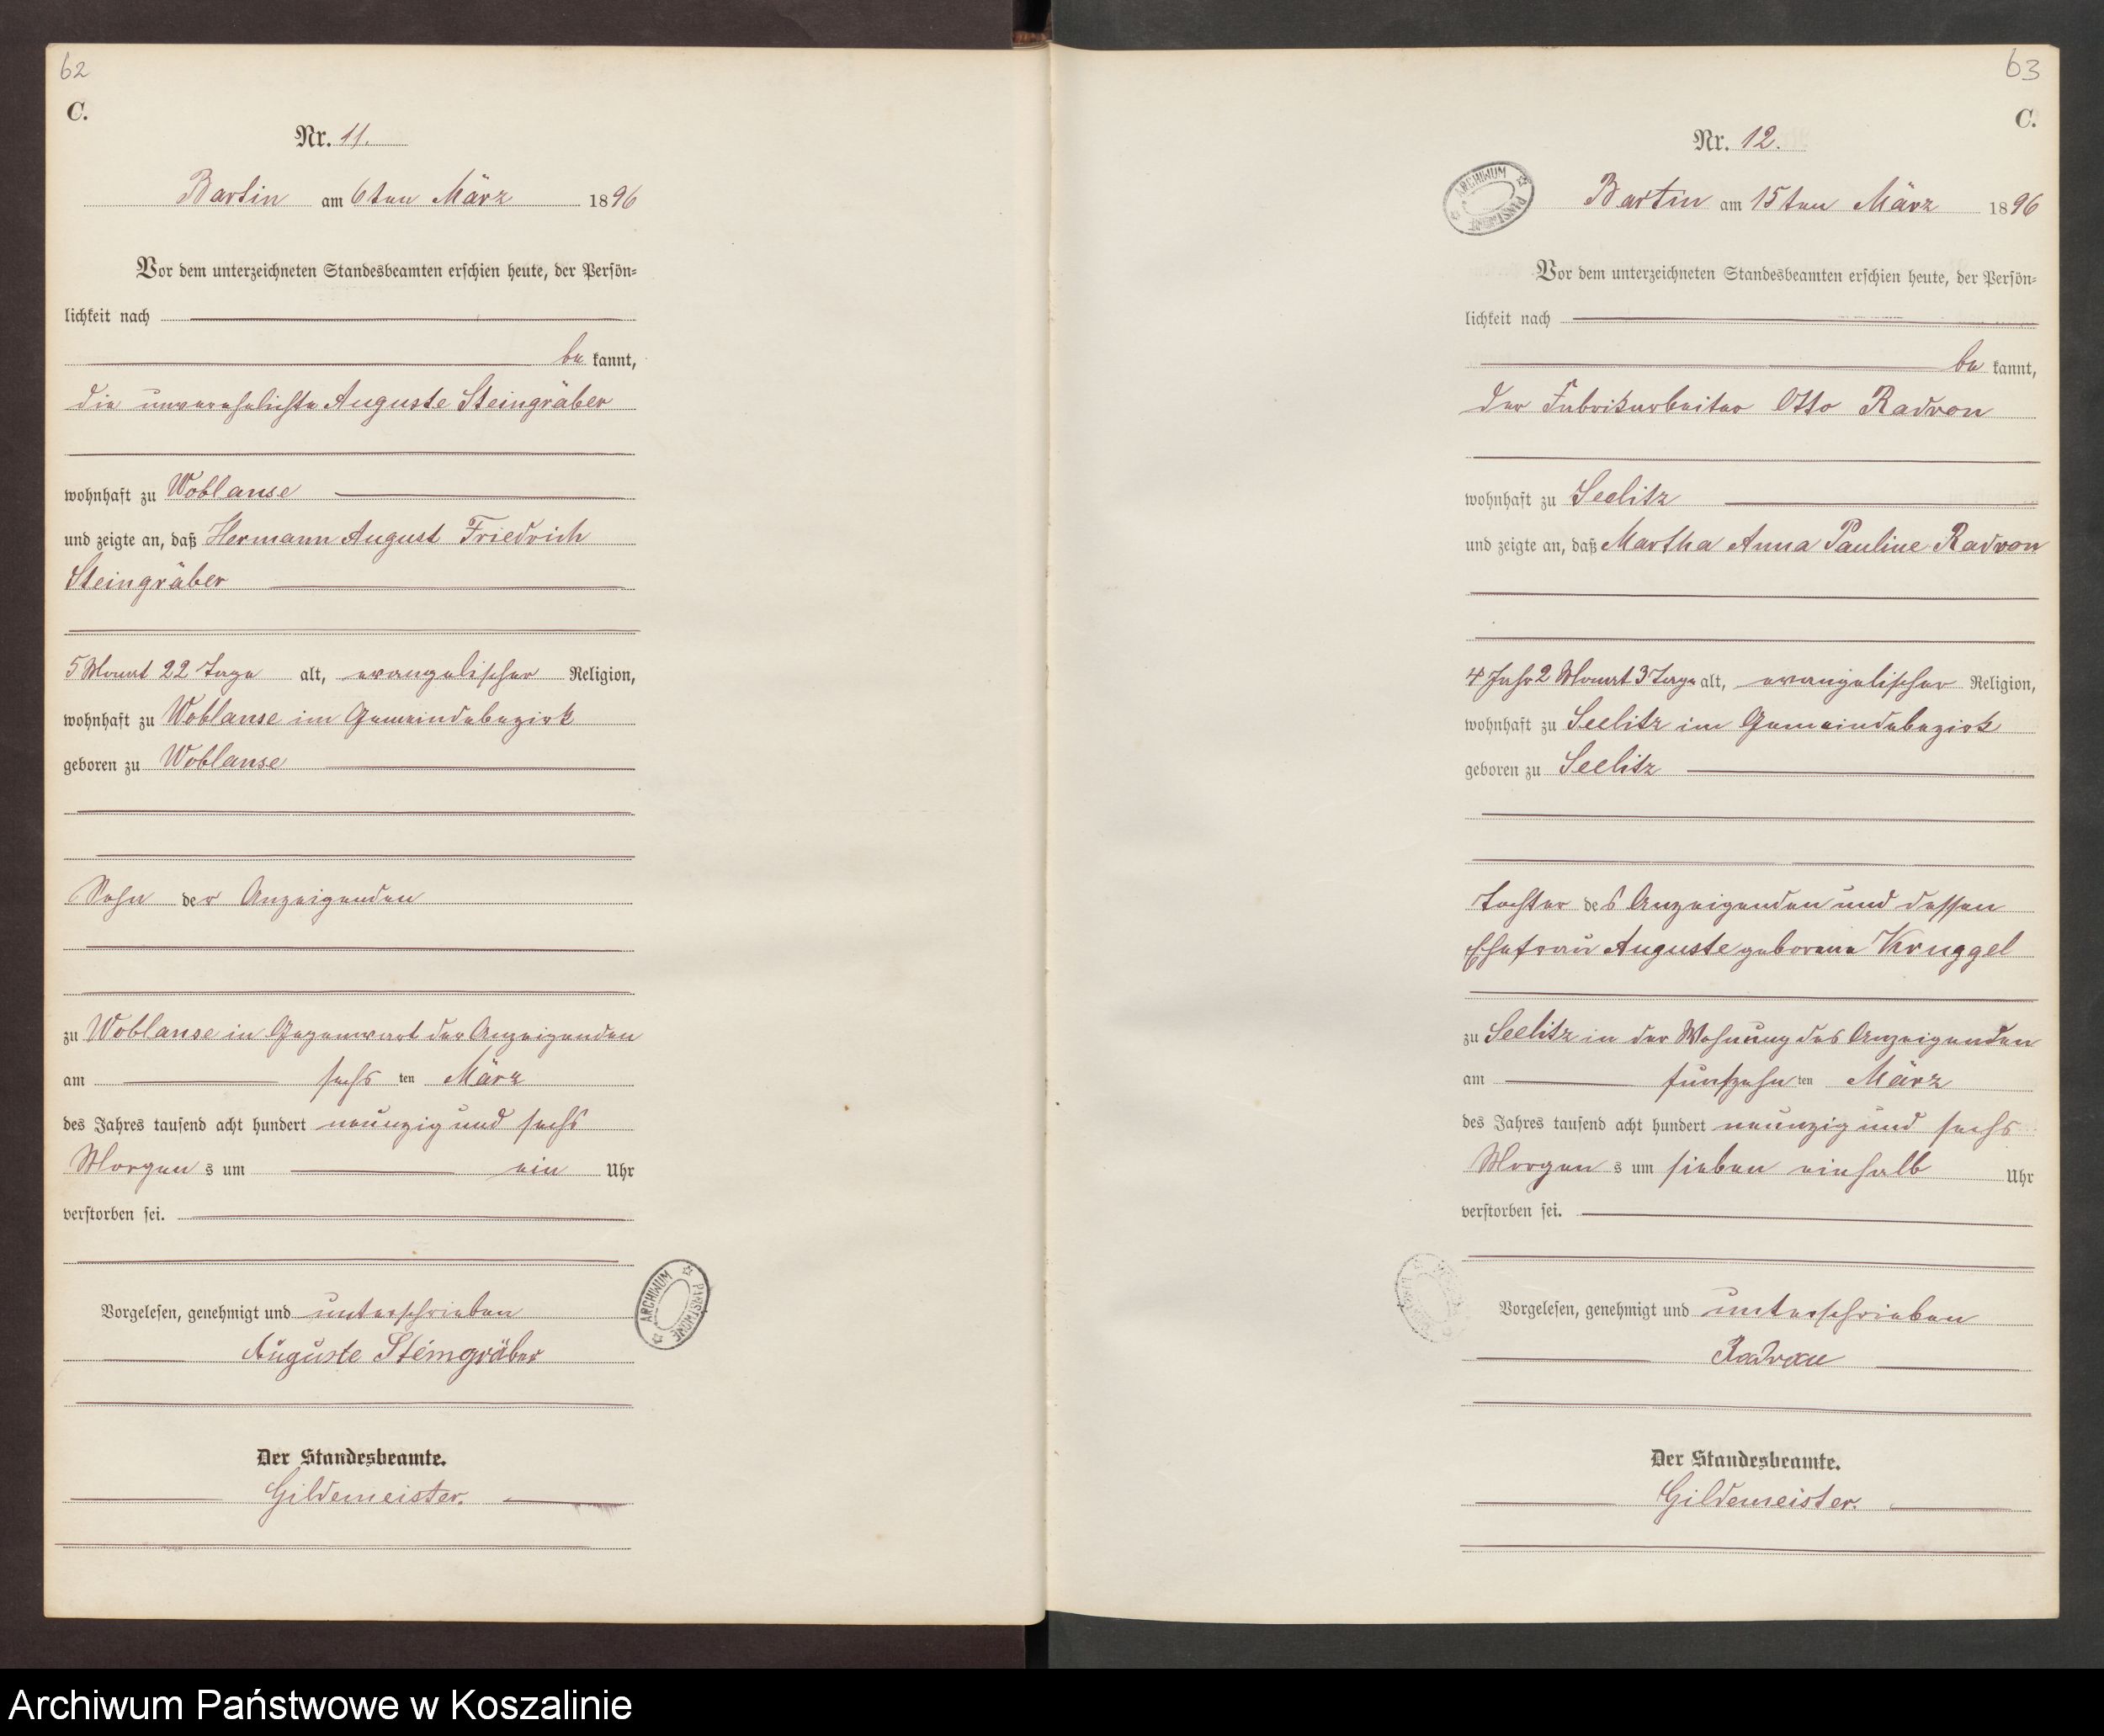 62
C.
Nr. 11.
Bartin am 6ten März 1896
Vor dem unterzeichneten Standesbeamten erschien heute, der Persön-
lichkeit nach
be kannt,
die unverehelichte Auguste Steingräber
wohnhaft zu Woblanse
und zeigte an, daß Hermann August Friedrich
Steingräber
5 Monat 22 Tage alt, evangelischer Religion,
wohnhaft zu Woblanse im Gemeindebezirk
geboren zu Woblanse
Sohn der Anzeigenden
zu Woblanse in Gegenwart der Anzeigenden
am sechs ten März
des Jahres tausend acht hundert neunzig und sechs
Morgen s um ein Uhr
verstorben sei.
Vorgelesen, genehmigt und unterschrieben
Auguste Steingräber
Der Standesbeamte.
Gildemeister.
ARCHIWUM PAŃSTWOWE
63
C.
Nr. 12.
ARCHIWUM PAŃSTWOWE
Bartin am 15ten März 1896
Vor dem unterzeichneten Standesbeamten erschien heute, der Persön-
lichkeit nach
be kannt,
der Fabrikarbeiter Otto Radron
wohnhaft zu Seelitz
und zeigte an, daß Martha Anna Pauline Radron
4 Jahr 2 Monat 3 Tage alt, evangelischer Religion,
wohnhaft zu Seelitz im Gemeindebezirk
geboren zu Seelitz
Tochter des Anzeigenden und dessen
Ehefrau Auguste geborene Kruggel
zu Seelitz in der Wohnung des Anzeigenden
am fünfzehn ten März
des Jahres tausend acht hundert neunzig und sechs
Morgen s um sieben einhalb Uhr
verstorben sei.
Vorgelesen, genehmigt und unterschrieben
Der Standesbeamte.
Gildemeister.
Archiwum Państwowe w Koszalinie